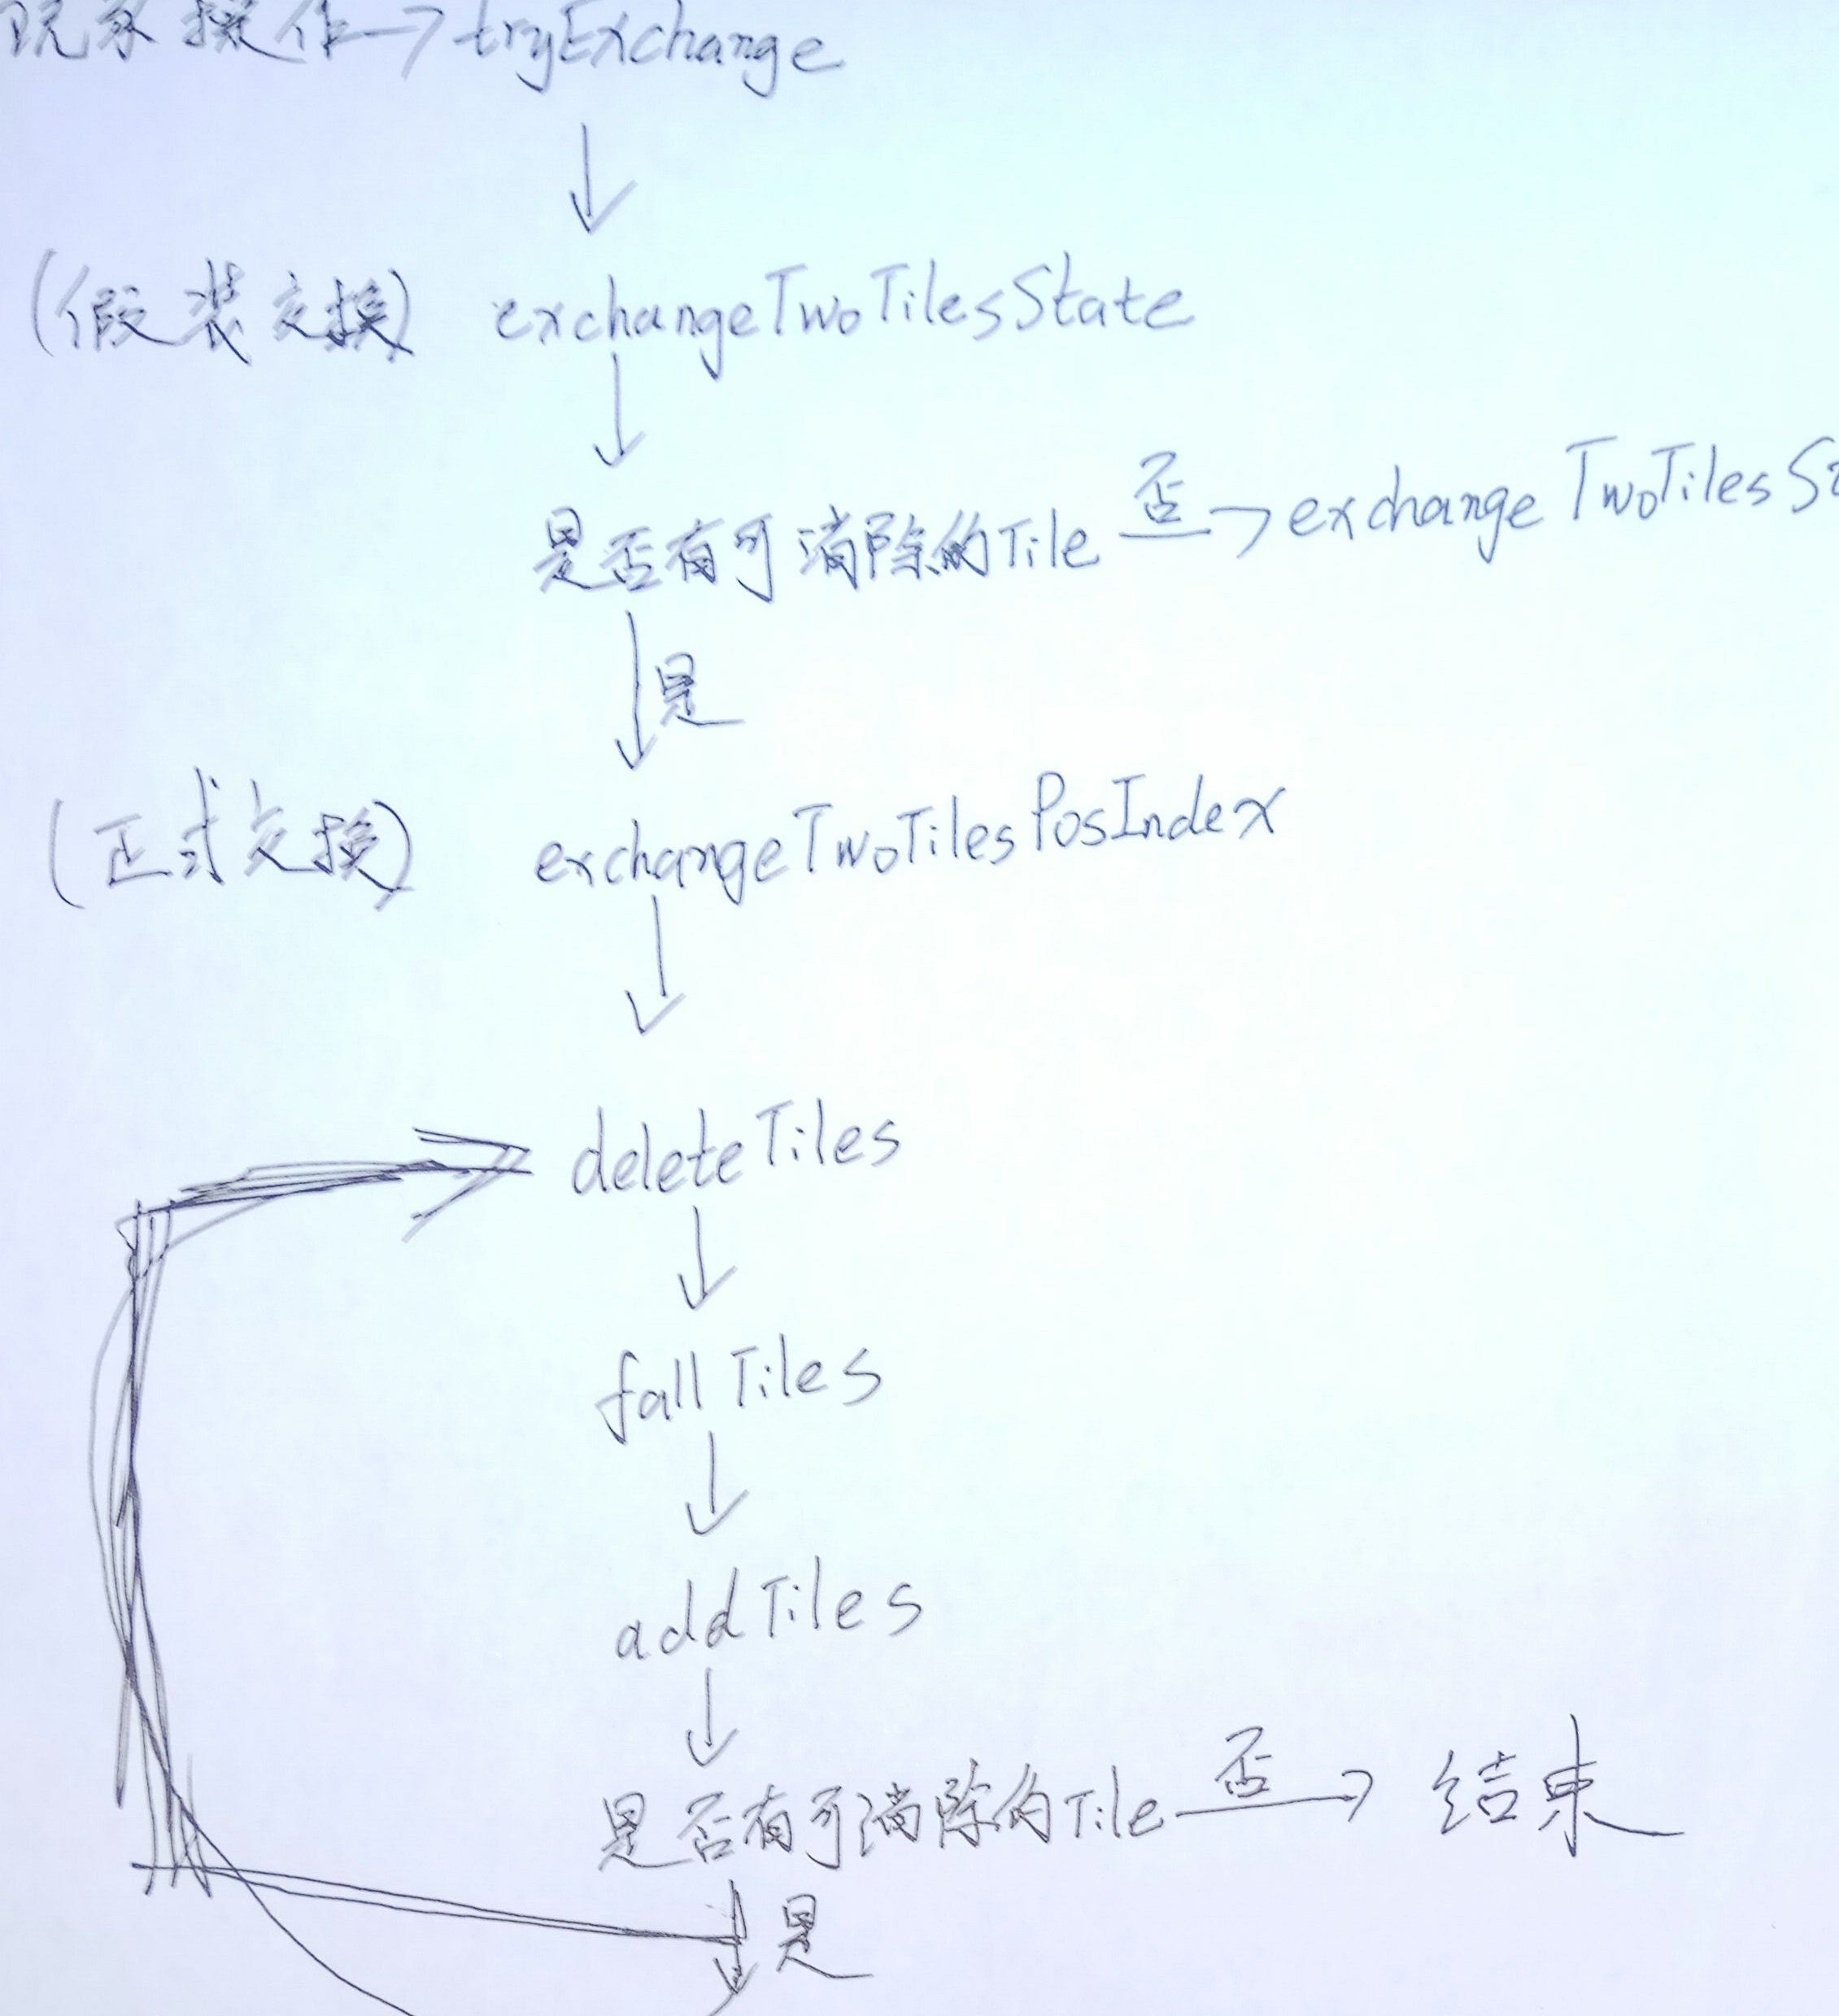 玩家操作→tryExchange
(假装交换) exchangeTwoTilesState
是否有可消除的Tile 否→exchangeTwoTilesSt
是
(正式交换) exchangeTwoTilesPosIndex
deleteTiles
fallTiles
addTiles
是否有可消除的Tile 否→结束
是